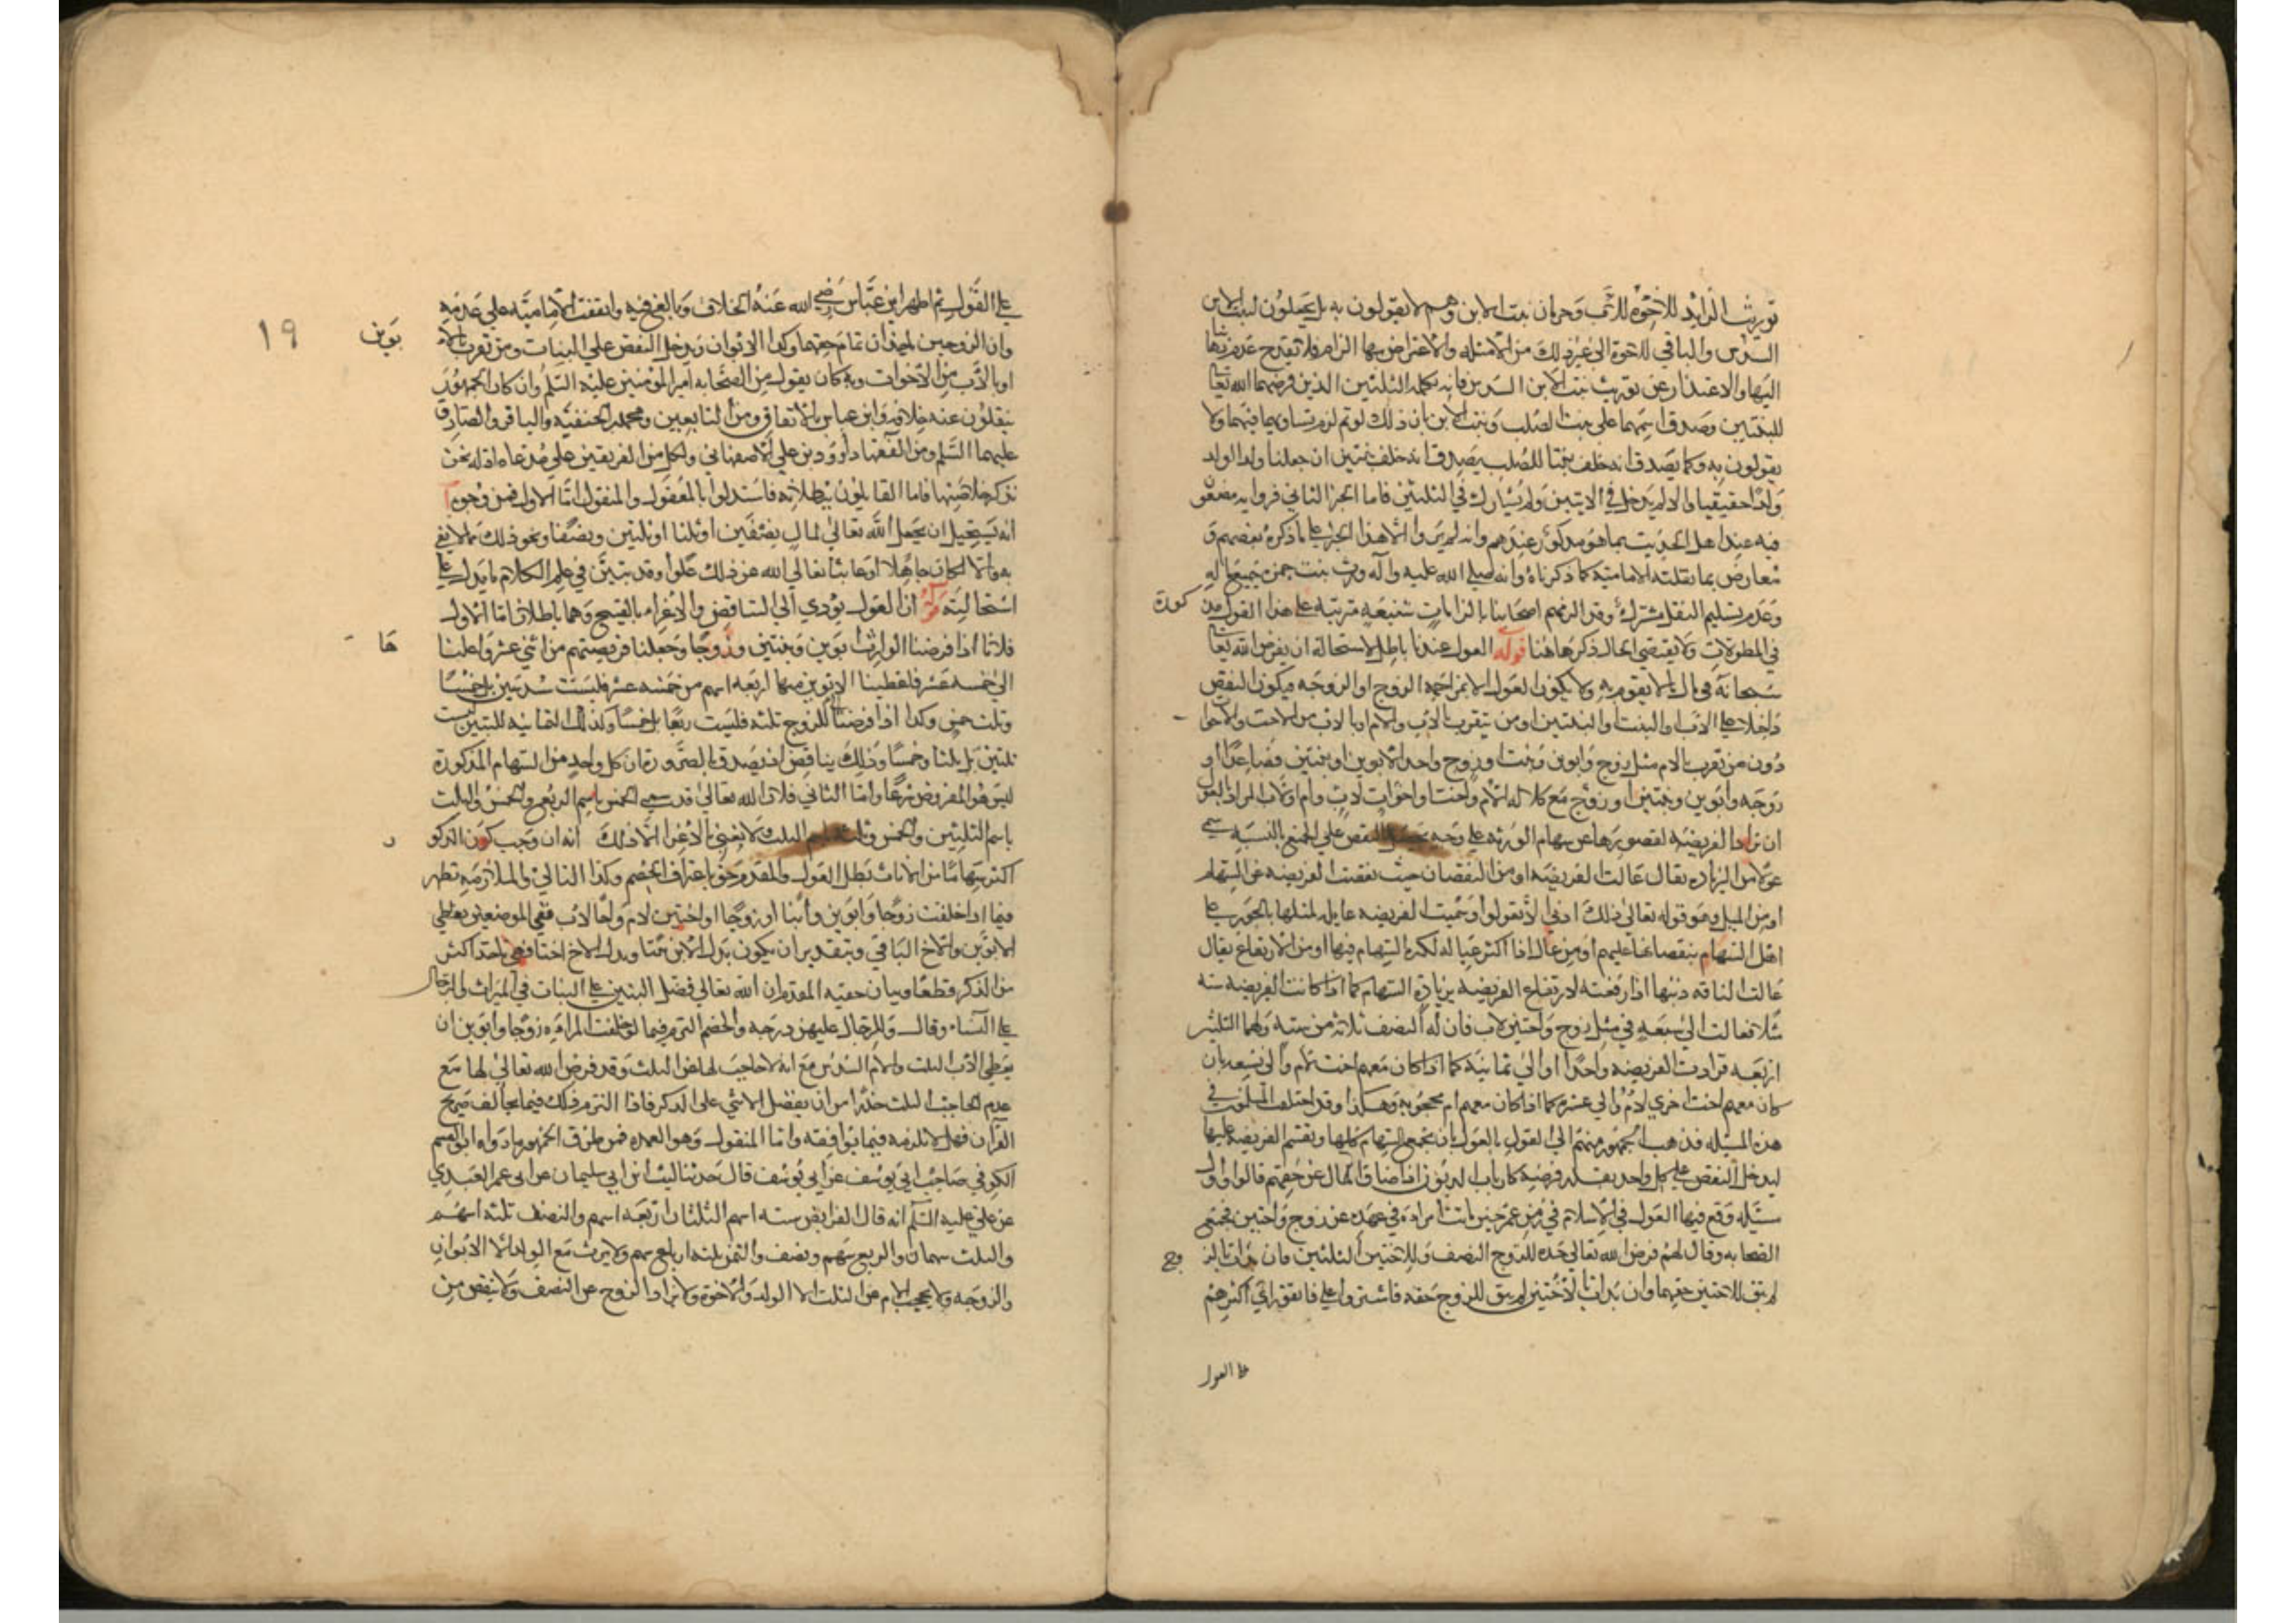 توريث الزايد للاخوة للاب وحرمان بنت الابن وهم لا يقولون به بل يجعلون لبنت الابن
السدس والباقي للاخوة الى غير ذلك من الامثله والاعتراض بها الزام فلا يقدح عدم
اليها والاعتذار عن توريث بنت الابن السدس فانه تكمله الثلثين الذين فرضهما الله تعالى
للبنتين وصدق اسمهما على بنت الصلب وبنت الابن بان ذلك لو تم لزم تساويهما فيهما ولا
يقولون به وكما يصدق انه خلف بنتا للصلب يصدق انه خلف بنتين ان جعلنا ولد الولد
ولدا حقيقيا والا لم يدخل في الابنتين ولم يشارك في الثلثين فاما الخبر الثاني فرواية مضعف
فيه عند اهل الحديث بما هو مذكور عندهم وانه لم يرو الا هذا الخبر على ما ذكره بعضهم و
معارض بما نقلته الامامية كما ذكرناه وانه صلى الله عليه وآله ورث بنت حمزة جميع ماله
وعدم تسليم النقل مشترك وقد الزمهم اصحابنا بالزامات شنيعه مترتبة على هذا القول مذ كورة
في المطولات ولا يقتضي الحال ذكرها هنا قوله العول عندنا باطل لاستحالة ان يفرض الله تعالى
سبحانه في مال ما لا يقوم به ولا يكون العول الا بمزاحمة الزوج او الزوجه فيكون النقص
داخلا على الاب او البنت او البنتين او من يتقرب بالاب والام او بالاب من الاخت والاخوات
دون من تقرب بالام مثل زوج وابوين وبنت او زوج واحد الابوين او بنتين فصاعدا او
زوجه وابوين وبنتين او زوج مع كلالة الام واخت او اخوات لاب وام او لاب المراد بالعول
ان تزاد الفريضة لقصورها عن سهام الورثه على وجه يحصل النقص على الجميع بالنسبه سمي
عولا من الزياده يقال عالت الفريضة او من النقصان حيث نقصت الفريضة عن السهام
او من الميل وهو قوله تعالى ذلك ادنى الا تعولوا وسميت الفريضه عايله لميلها بالجور على
اهل السهام بنقصانها عليهم او من عال اذا اكثر عياله لكثرة السهام فيها او من الارتفاع يقال
عالت الناقه ذنبها اذا رفعته لارتفاع الفريضه بزيادة السهام كما اذا كانت الفريضه ستة
مثلا فعالت الى سبعه في مثل زوج واختين لاب فان له النصف ثلاثة من ستة ولهما الثلثين
اربعه فزادت الفريضه واحدا او الى ثمانية كما اذا كان معهم اخت لام والى تسعه بان
كان معهم اخت اخرى لام والى عشرة كما اذا كان معهم ام محجوبة وهكذا وقد اختلف المسلمون في
هذه المسئله فذهب الجمهور منهم الى القول بالعول بان تجمع السهام كلها وتقسم الفريضة عليها
ليدخل النقص على كل واحد بقدر فرضه كارباب الديون اذا ضاق المال عن حقهم قالوا واول
مسئله وقع فيها العول في الاسلام في زمن عمر حين ماتت امراة في عهده عن زوج واختين فجمع
الصحابه وقال لهم فرض الله تعالى جده للزوج النصف وللاختين الثلثين فان بدات بالز وج
لم يبق للاختين حقهما وان بدات بالاختين لم يبق للزوج حقه فاشيروا علي فاتفق راي اكثرهم
على العول
على القول ثم اظهر ابن عباس رضي الله عنه الخلاف وبالغ فيه واتفقت الامامية على عدمه
وان الزوجين ياخذان تمام حقهما وكذا الا بوان ويدخل النقص على البنات ومن تقرب بالا بوين
او بالاب من الاخوات وبه كان يقول من الصحابه امير المومنين عليه السلم وان كان الجمهور
ينقلون عنه خلافه وابن عباس بالاتفاق ومن التابعين ومحمد بن الحنفيه والباقر والصادق
عليهما السلم ومن الفقها داوود بن علي الاصفهاني ولكل من الفريقين على مدعاه ادله نحن
نذكر خلاصتها فاما القايلون ببطلانه فاستدلوا بالمعقول والمنقول اما الاول فمن وجوه آ
انه يستحيل ان يجعل الله تعالى لمال نصفين وثلثا او ثلثين ونصفا ونحو ذلك مما لا يفي
به والا لكان جاهلا او عابثا تعالى الله عن ذلك علوا وقد تبين في علم الكلام ما يدل على
استحالته ب ان العول يودي الى التناقض والاغراء بالقبيح وهما باطلان اما الاول
فلانا اذا فرضنا الوارث ابوين وبنتين وزوجا وجعلنا فريضتهم من اثني عشر واعلنا ها
الى خمسه عشر فاعطينا الابوين منها اربعه اسهم من خمسه عشر فليست سدسين بل خمسا
وثلث خمس وكذا اذا فرضنا للزوج ثلثه فليست ربعا بل خمسا وكذلك الثمانيه للبنتين ليست
ثلثين بل ثلثا وخمسا وذلك يناقض اذ يصدق بالضرورة ان كل واحد من السهام المذكورة
ليس هو المفروض شرعا واما الثاني فلان الله تعالى قد سمى الخمس باسم الربع والخمس والثلث
باسم الثلثين والخمس وثلثه باسم الثلث ولا نعني بالاغرا الا ذلك انه ان وجب كون الذكور
اكثر سهاما من الاناث بطل العول والمقدم حق باعتراف الخصم وكذا التالي والملازمه تظهر
فيما اذا خلفت زوجا وابوين وابنا او زوجا واختين لام واخا لاب ففي الموضعين يعطى
الابوين والاخ الباقي وبتقدير ان يكون بدل الابن بنتا وبدل الاخ اختا فهي تاخذ اكثر
من الذكر قطعا وبيان حقيه المقدم ان الله تعالى فضل البنين على البنات في الميراث والرجال
على النساء وقال وللرجال عليهن درجه والخصم التزم فيما لو خلفت المراة زوجا وابوين ان
يعطى الاب الثلث والام السدس مع انه لا حاجب لها عن الثلث وقد فرض الله تعالى لها مع
عدم الحاجب الثلث حذرا من ان يفضل الانثى على الذكر فاذا التزم ذلك فيما يخالف صريح
القرآن فهلا التزمه فيما يوافقه واما المنقول وهو العمده فمن طرق الجمهور ما رواه ابو القسم
الكوفي صاحب ابي يوسف عن ابي يوسف قال حدثنا ليث بن ابي سليمان عن ابي عمر العبدي
عن علي عليه السلم انه قال الفرايض سته اسهم الثلثان اربعه اسهم والنصف ثلثه اسهم
والثلث سهمان والربع سهم ونصف والثمن ثلثه ارباع سهم ولا يرث مع الولد الا الابوان
والزوجه ولا يحجب الام عن الثلث الا الولد والاخوة ولا يزاد الزوج عن النصف ولا ينقص من
١٩